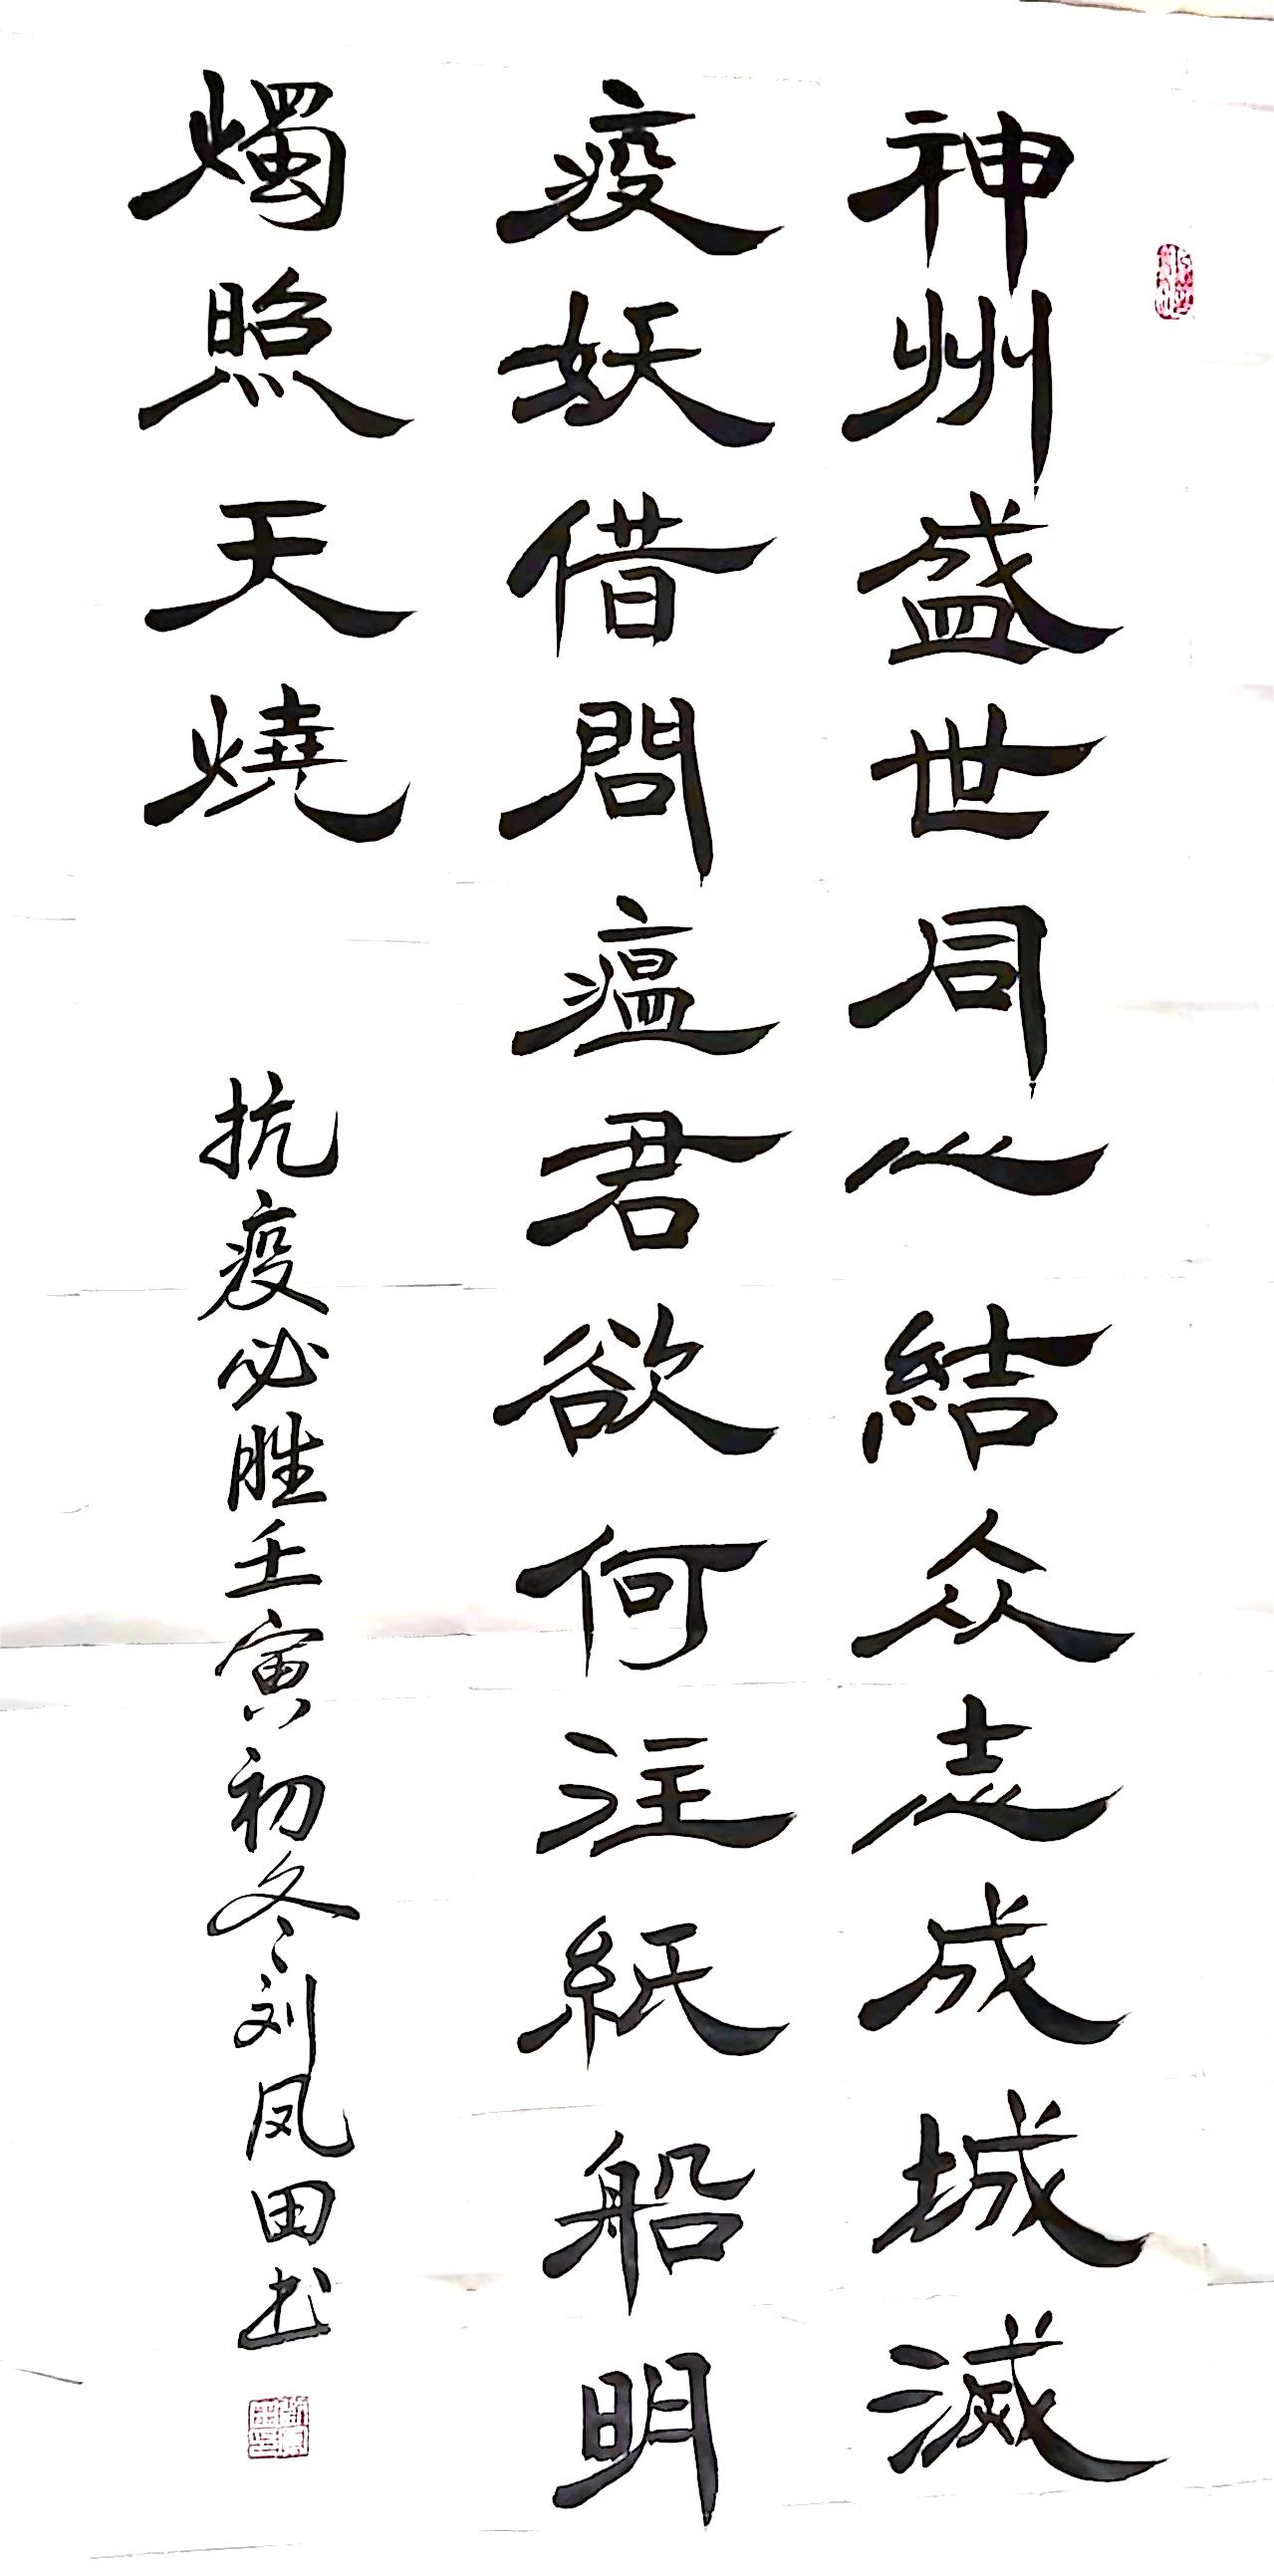 神州盛世同心結众志成城滅
疫妖借問瘟君欲何注紙船明
燭照天燒
抗疫必胜壬寅初冬刘凤田书